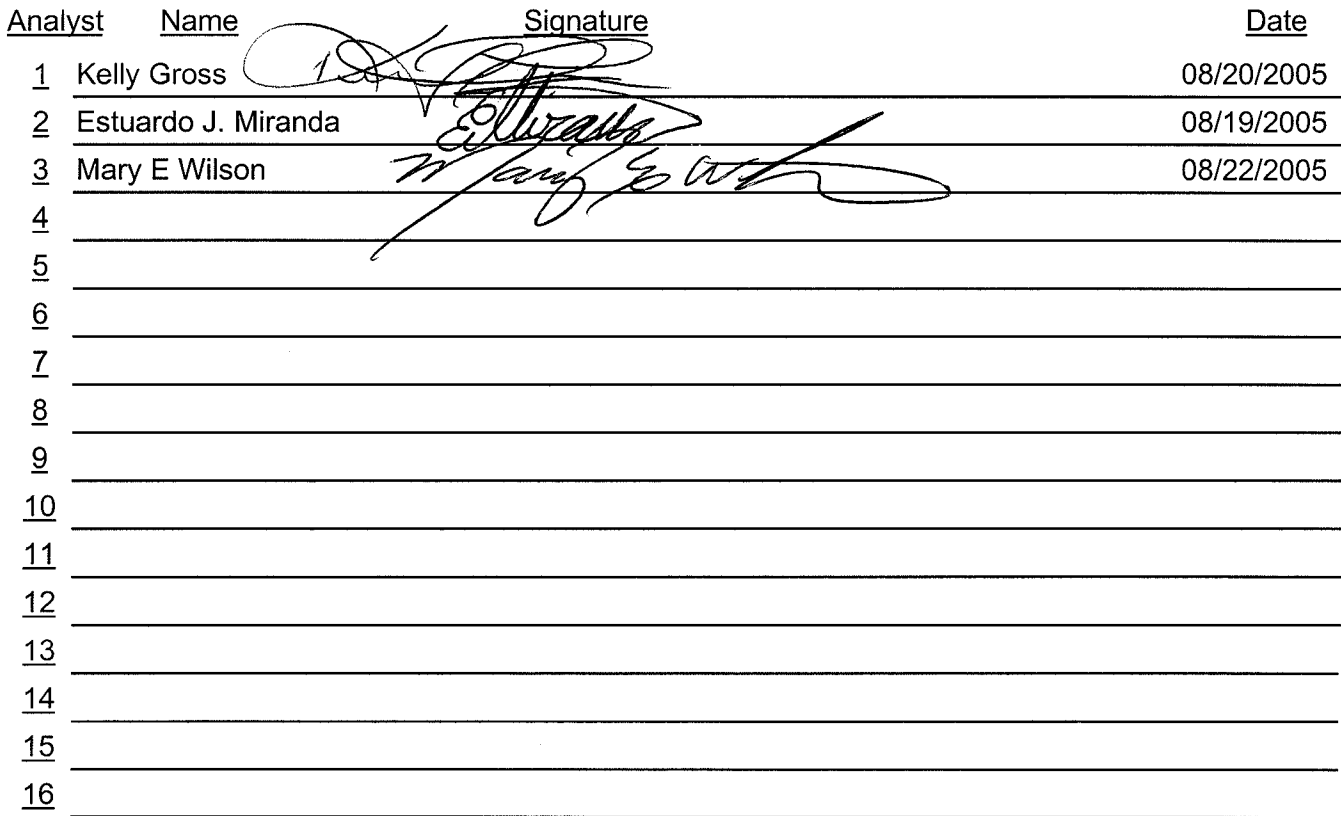 Analyst Name Signature Date
1 Kelly Gross 08/20/2005
2 Estuardo J. Miranda 08/19/2005
3 Mary E Wilson Mary E W 08/22/2005
4
5
6
7
8
9
10
11
12
13
14
15
16